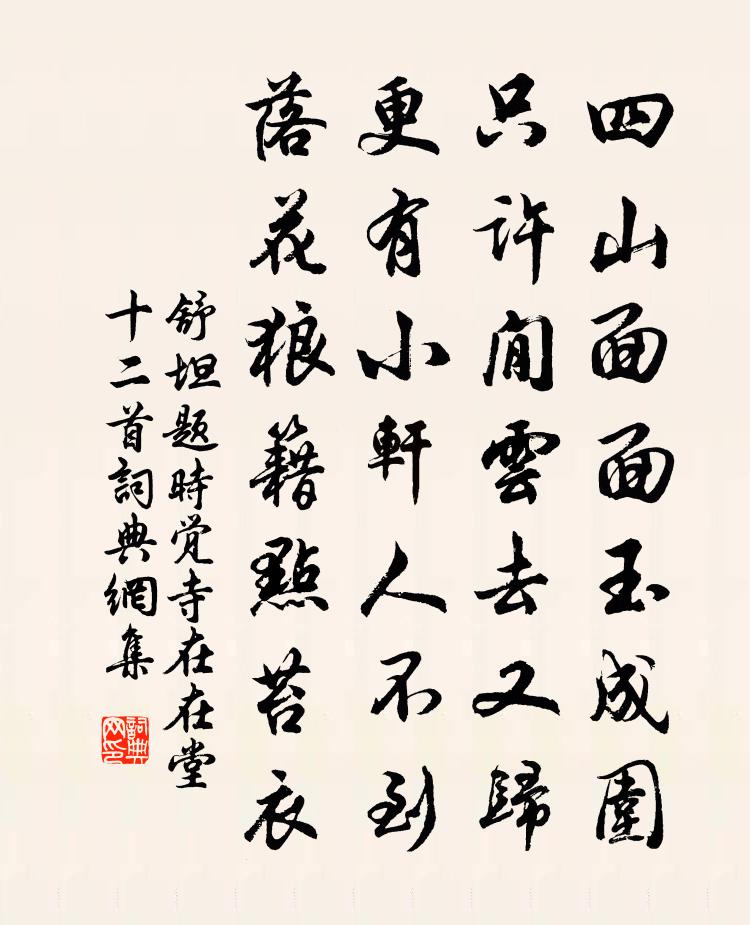 四山面面玉成圍
只許閒雲去又歸
更有小軒人不到
落花狼籍點苔衣
舒坦題時觉寺在在堂
十二首詞典網集
詞典
网印